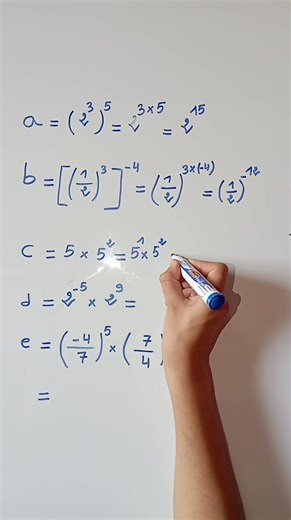 a = (2³)⁵ = 2³ˣ⁵ = 2¹⁵
b = [(1/2)³]⁻⁴ = (1/2)³ˣ⁽⁻⁴⁾ = (1/2)⁻¹²
c = 5 × 5² = 5¹ × 5²
d = 2⁻⁵ × 2⁹ =
e = (-4/7)⁵ × (7/4)
=